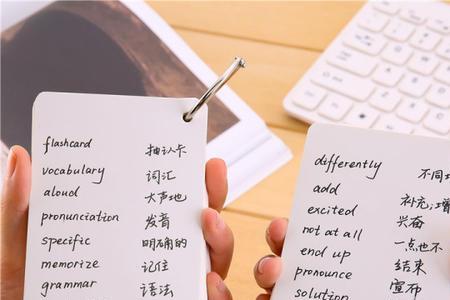 flashcard 抽认卡
vocabulary 词汇
aloud 大声地
pronunciation 发音
specific 明确的
memorize 记住
grammar 语法
differently 不同
add 补充;增
excited 兴奋
not at all 一点也不
end up 结束
pronounce 宣布
solution